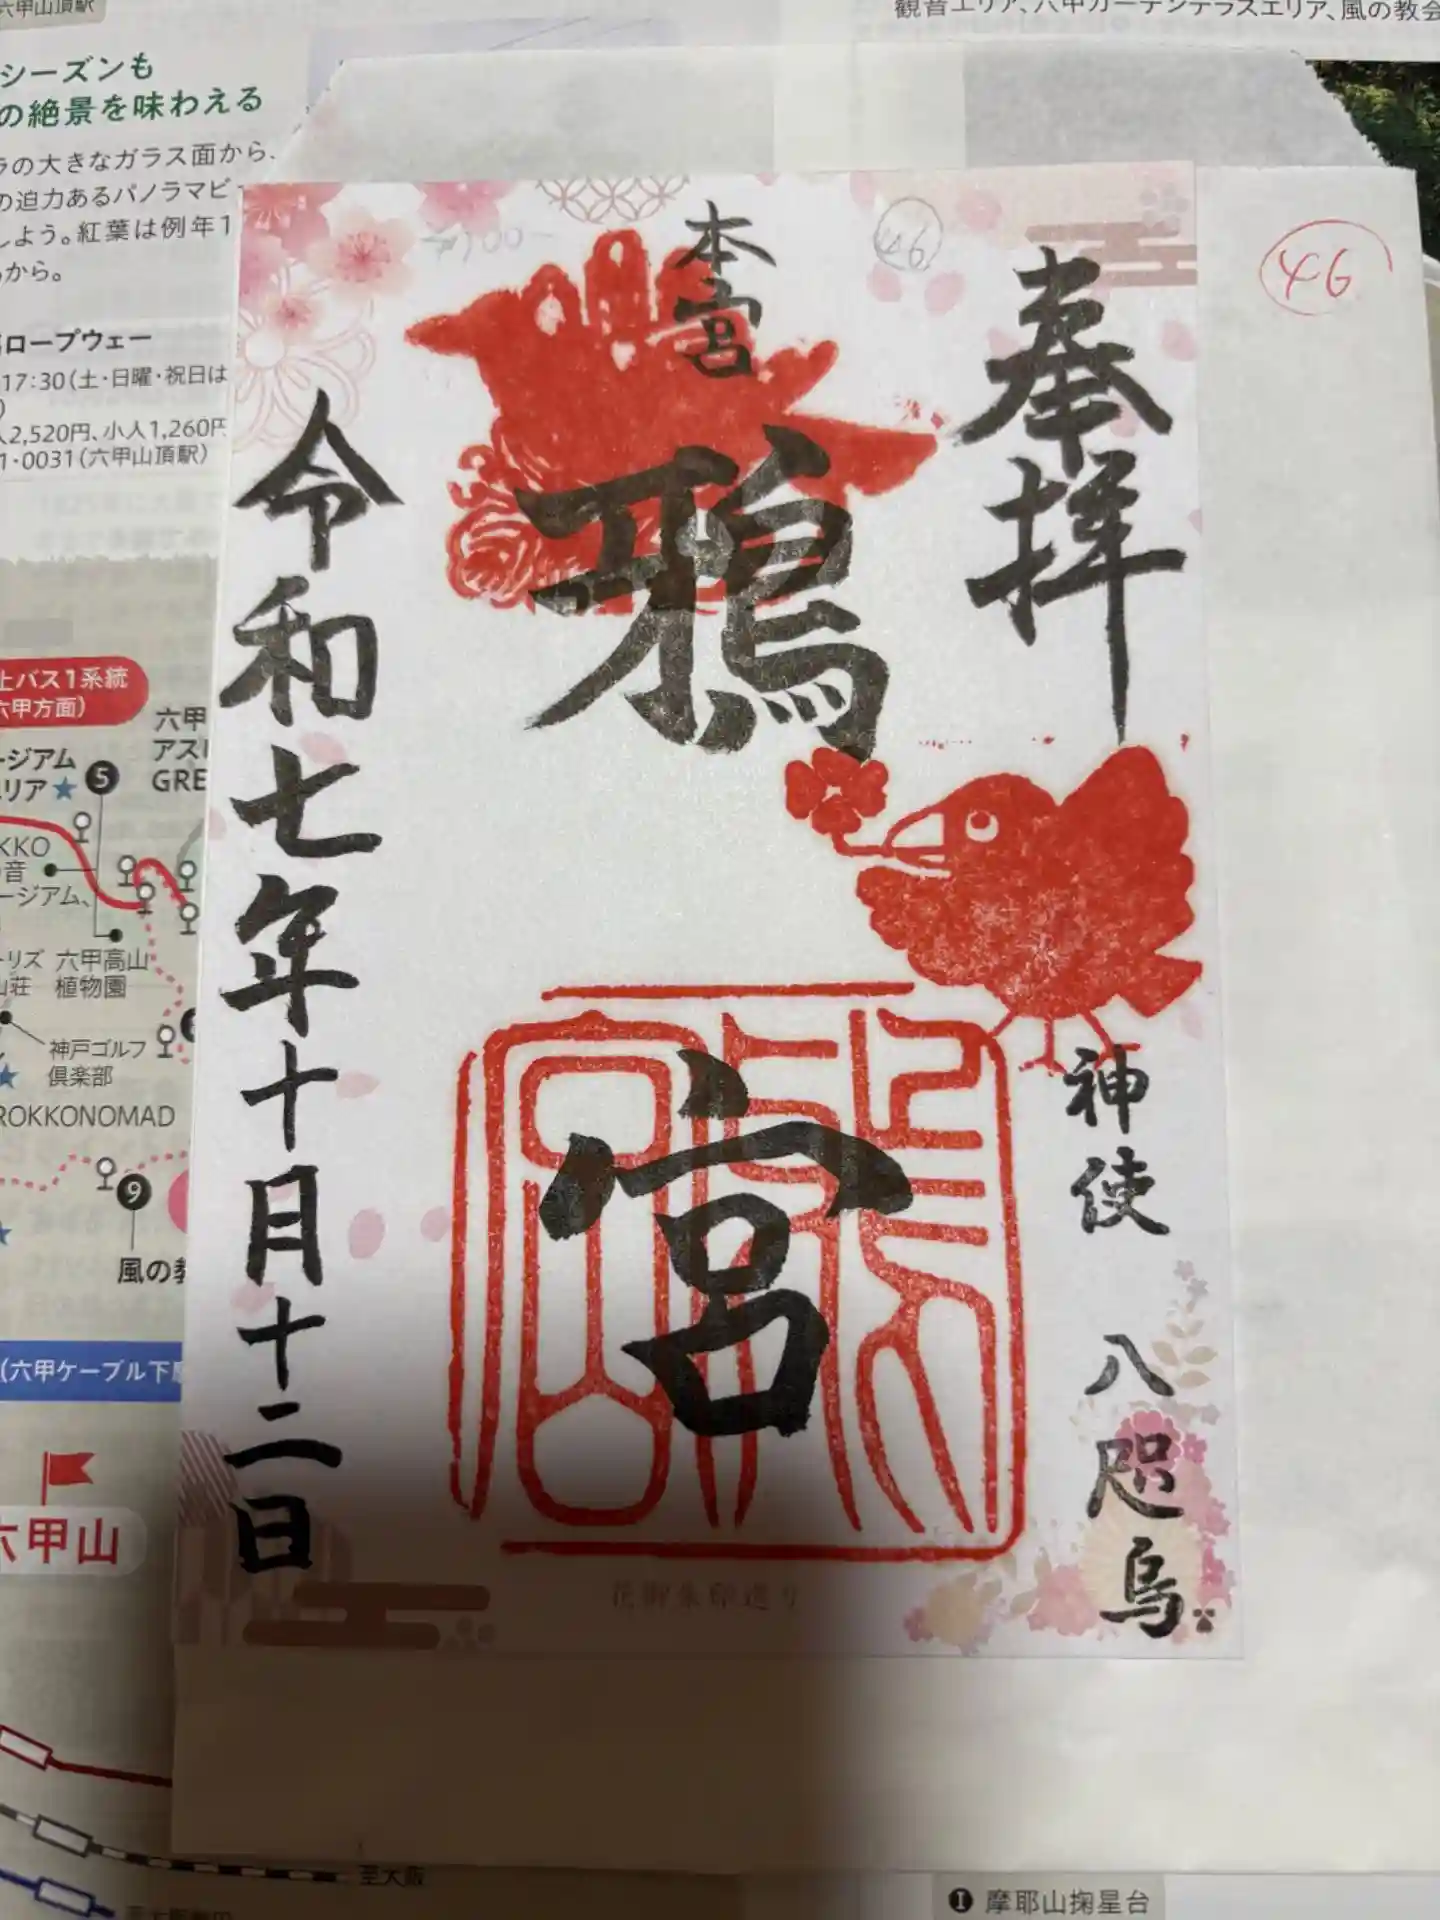 六甲山頂駅
観音エリア、六甲ガーデンテラスエリア、風の教会
シーズンも
の絶景を味わえる
ラの大きなガラス面から、
の迫力あるパノラマビ
しよう。紅葉は例年1
から。
ロープウェー
17:30(土・日曜・祝日は
人2,520円、小人1,260円
1・0031(六甲山頂駅)
奉拝
本宮
鴉宮
神使 八咫烏
令和七年十月十二日
46
46
花御朱印巡り
上バス1系統
六甲方面)
ージアム
エリア★
5
六甲
アスレ
GRE
KKO
音
ージアム、
ーリズ
山荘
六甲高山
植物園
神戸ゴルフ
倶楽部
ROKKONOMAD
9
風の教
(六甲ケーブル下
六甲山
至大阪
I 摩耶山掬星台